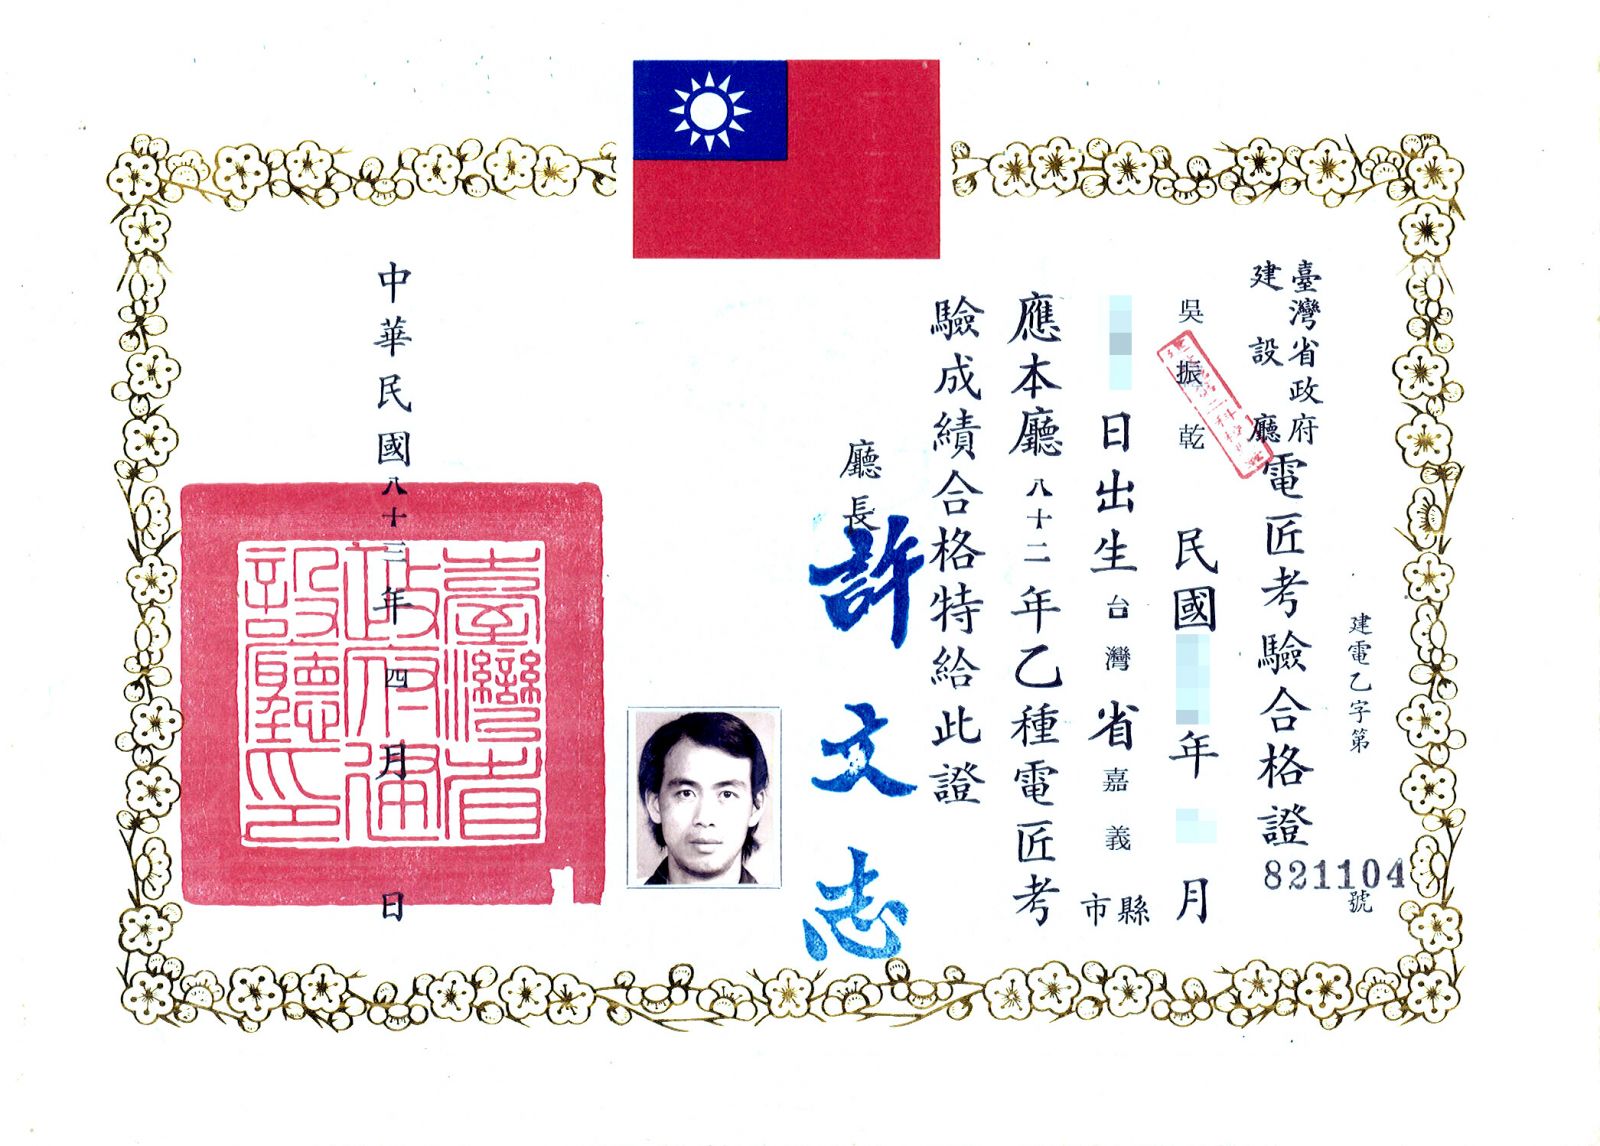 建電乙字第821104號
臺灣省政府
建設廳
電匠考驗合格證
吳振乾 民國 年 月
日出生台灣省嘉義縣市
應本廳八十二年乙種電匠考
驗成績合格特給此證
廳長 許文志
臺灣省
政府建
設廳印
中華民國八十三年四月 日